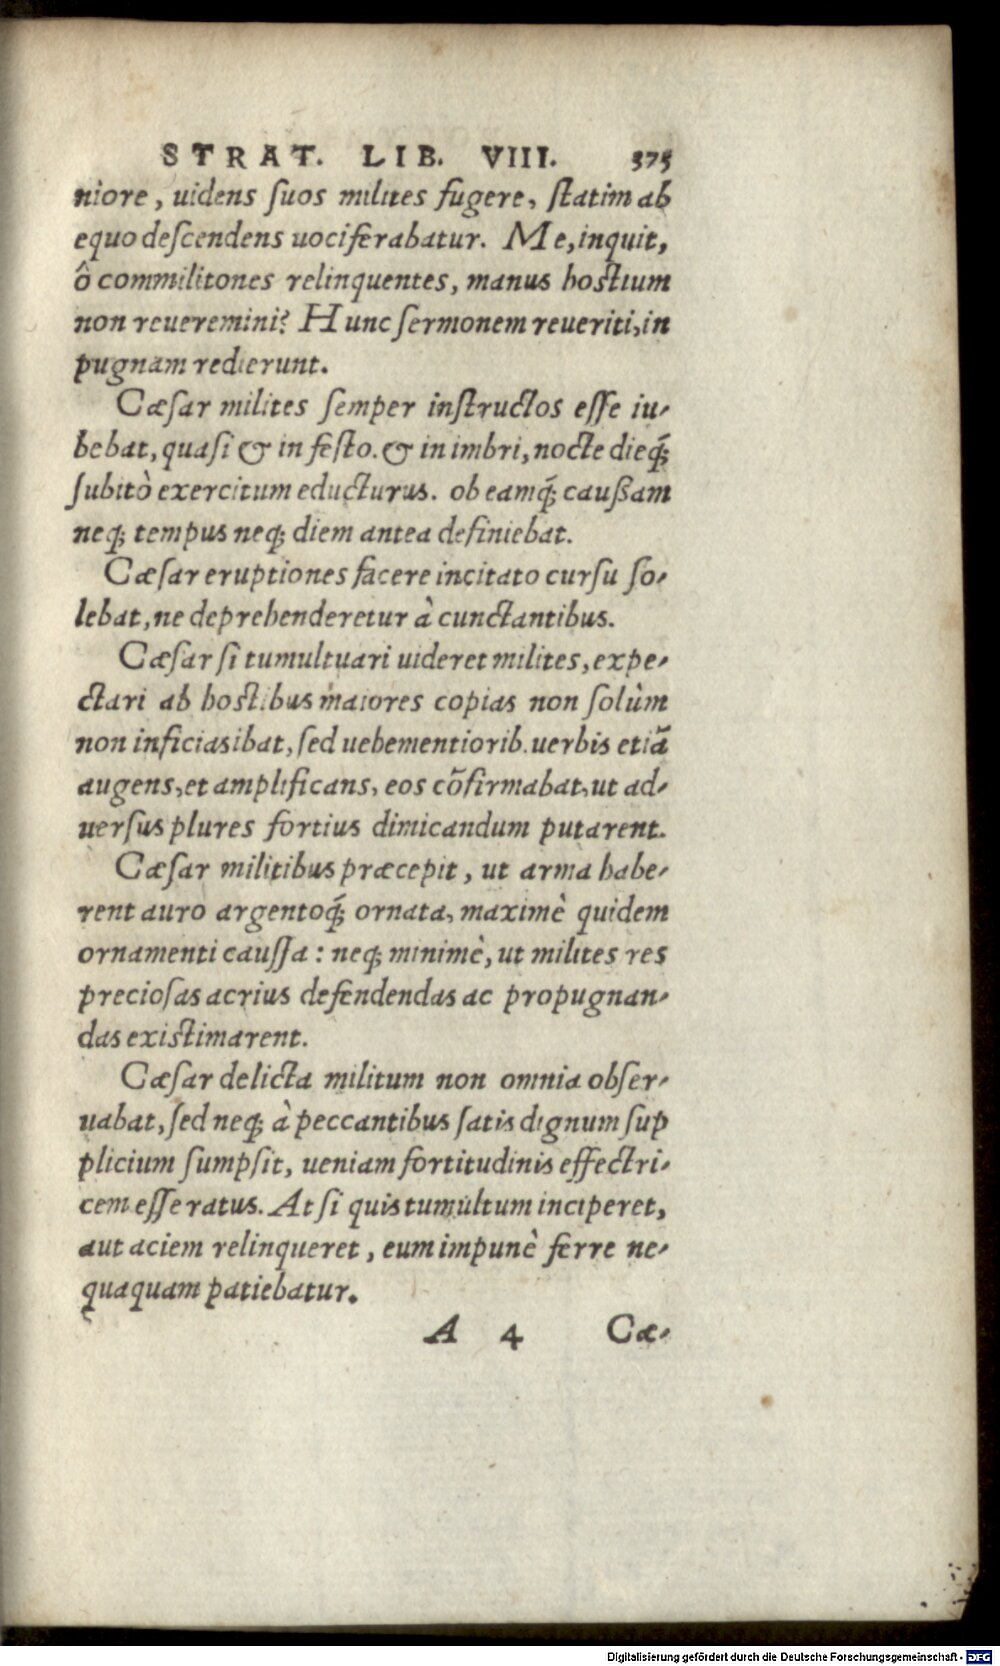 STRAT. LIB. VIII. 375
niore, uidens suos milites fugere, statim ab
equo descendens uociferabatur. Me, inquit,
ô commilitones relinquentes, manus hostium
non reueremini? Hunc sermonem reueriti, in
pugnam redierunt.
Cæsar milites semper instructos esse iu-
bebat, quasi & in festo. & in imbri, nocte dieq́;
subitò exercitum educturus. ob eamq́; caußam
neq; tempus neq; diem antea definiebat.
Cæsar eruptiones facere incitato cursu so-
lebat, ne deprehenderetur à cunctantibus.
Cæsar si tumultuari uideret milites, expe-
ctari ab hostibus maiores copias non solùm
non inficias ibat, sed uehementiorib. uerbis etiã
augens, et amplificans, eos cõfirmabat, ut ad-
uersus plures fortius dimicandum putarent.
Cæsar militibus præcepit, ut arma habe-
rent auro argentoq́; ornata, maximè quidem
ornamenti caussa: neq; minimè, ut milites res
preciosas acrius defendendas ac propugnan-
das existimarent.
Cæsar delicta militum non omnia obser-
uabat, sed neq; à peccantibus satis dignum sup
plicium sumpsit, ueniam fortitudinis effectri-
cem esse ratus. At si quis tumultum inciperet,
aut aciem relinqueret, eum impunè ferre ne-
quaquam patiebatur.
A 4 Cæ-
Digitalisierung gefördert durch die Deutsche Forschungsgemeinschaft - DFG